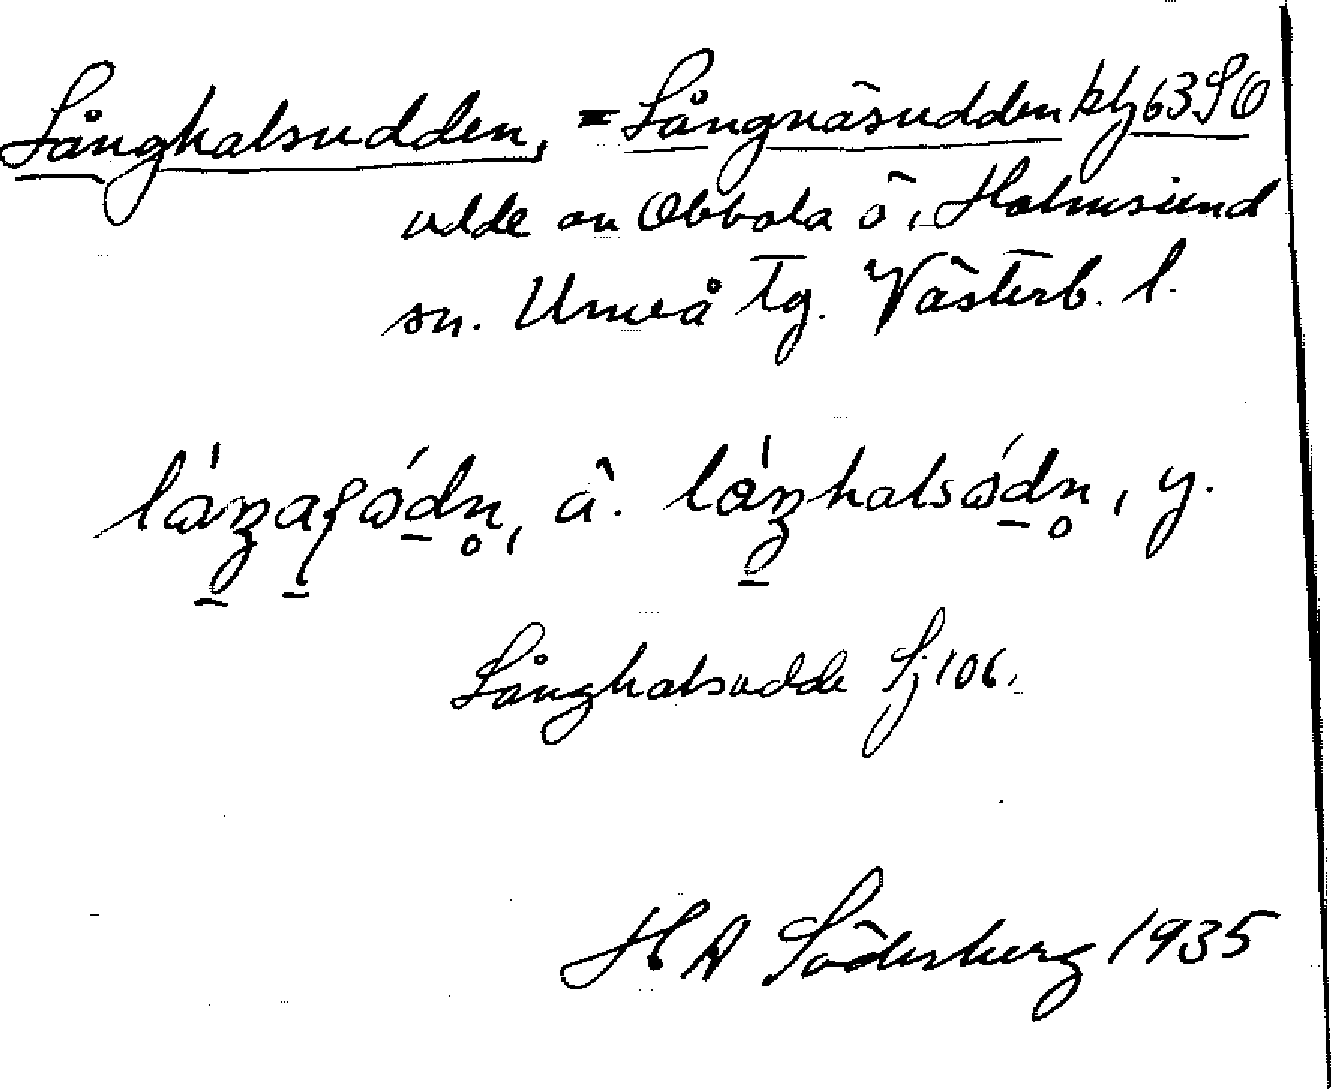 Långhalsudden, = Långnäsudden kbj 63 SO
udde on Obbola ö, Holmsund
sn. Umeå Tg. Västerb. l.
ä. y.
Långhalsudde Sj 106.
H A Söderberg 1935